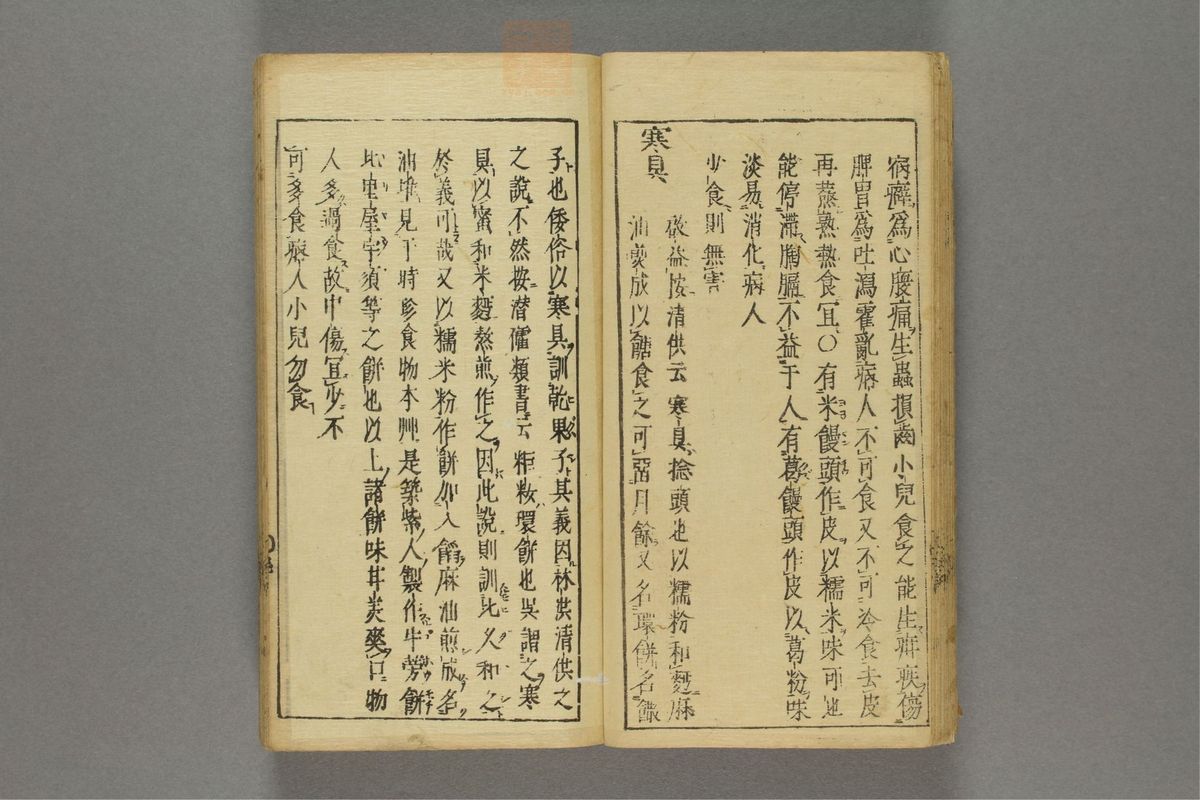 病癖爲心腹痛生蟲損齒小兒食之能生疳疾傷
脾胃爲吐瀉霍亂病人不可食又不可冷食去皮
再蒸熟熱食宜〇有米饅頭作皮以糯米味可也
能停滯胸膈不益于人有葛饅頭作皮以葛粉味
淡易消化病人
少食則無害
寒具
敬益按清供云寒具捻頭也以糯粉和麪麻
油煎成以餹食之可畱月餘又名環餅名饊
子也倭俗以寒具訓乾果子其義因林洪清供之
之說不然按潛確類書云粔籹環餅也吳謂之寒
具以蜜和米麪熬煎作之因此說則訓比久和之
於義可哉又以糯米粉作餅加入饀麻油煎成名
油堆見于時珍食物本艸是築紫人製作牛蒡餅
比屋宇須等之餅也以上諸餅味甘美爽口物
人多過食故中傷宜少不
可多食病人小兒勿食